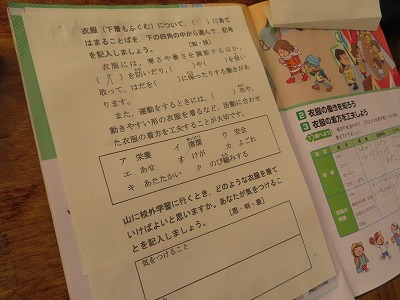 衣服（下着もふくむ）について，（ ）にあて
はまることばを，下の四角の中から選んで，記号
を記入しましょう。
〔知・技〕
衣服には，寒さや暑さを調節するほか，
（オ）を防いだり，（ ）や（ ）を吸い
取って，はだを（ ）に保ったりする働きがあ
ります。
また，運動をするときには，（ ）服や，
動きやすい形の衣服を着るなど，活動に合わせ
た衣服の着方を工夫することが大切です。
ア 栄養 イ 清潔 ウ 安全
エ あせ オ けが カ よごれ
キ あたたかい ク のび縮みする
山に校外学習に行くとき，どのような衣服を着て
いけばよいと思いますか。あなたが気をつけるこ
とを記入しましょう。
〔思・判・表〕
気をつけること
2 衣服の働きを知ろう
3 衣服の着方を工夫しよう